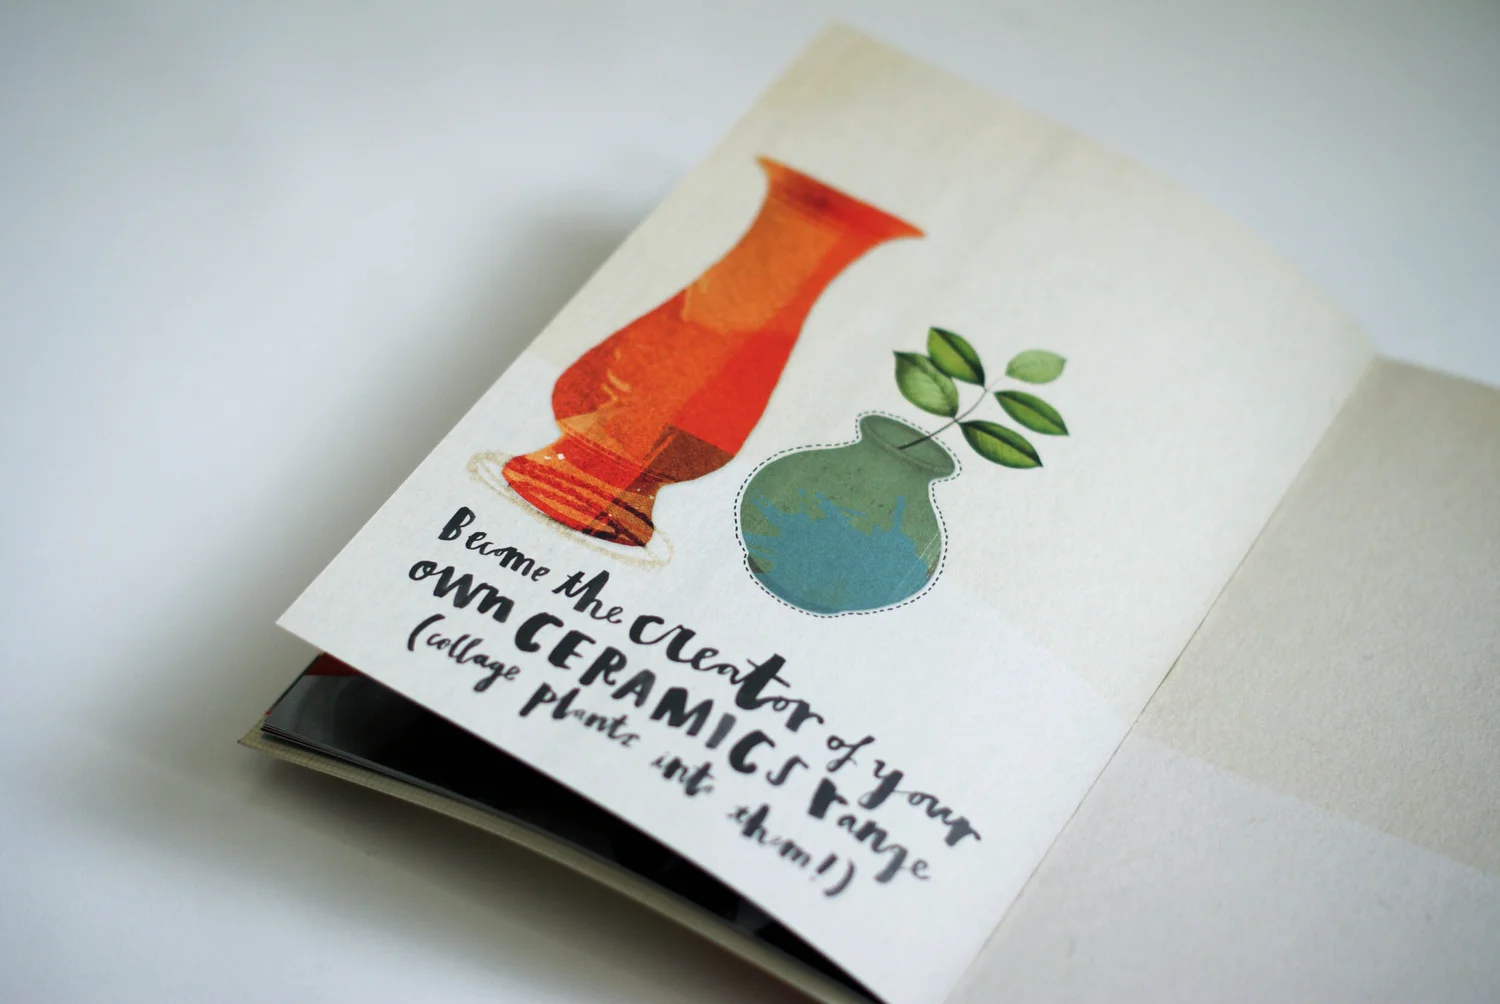 Become the creator of your
own CERAMICS range
(collage plants into them!)